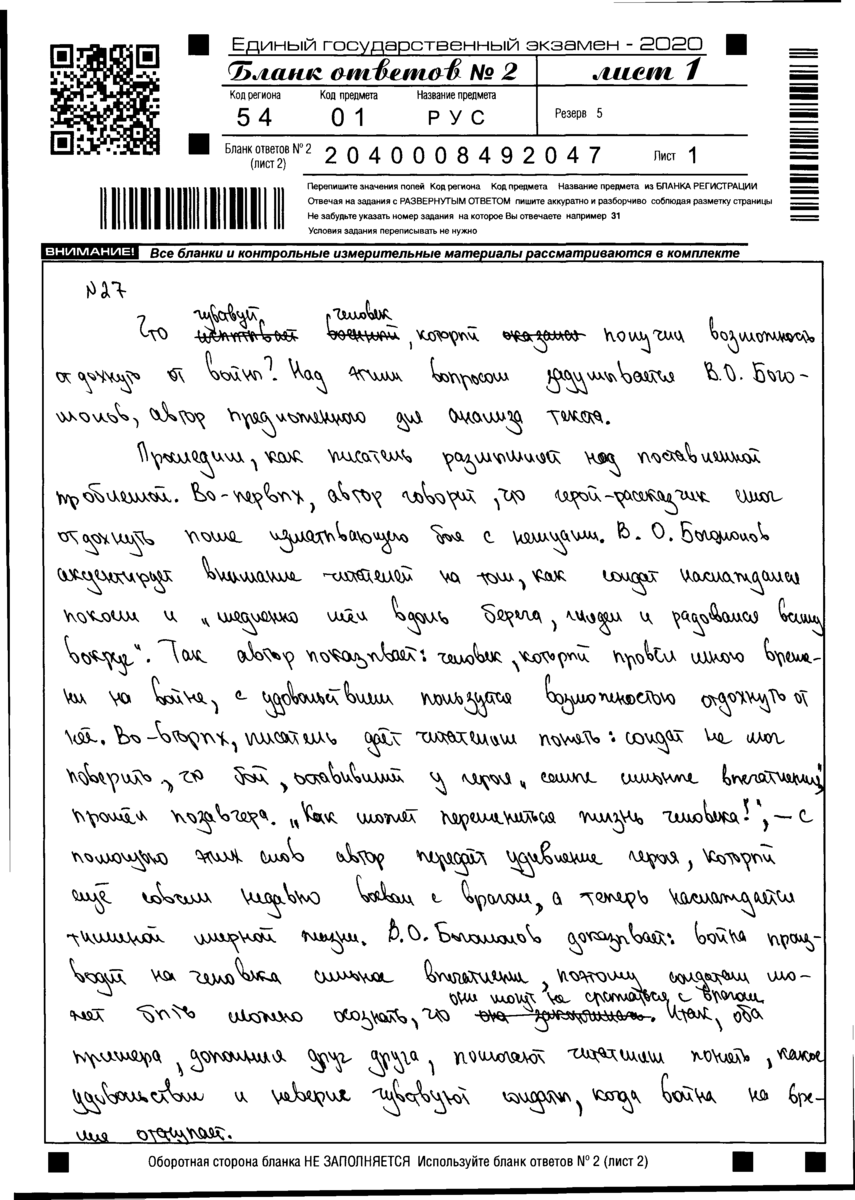 Единый государственный экзамен - 2020
Бланк ответов № 2 лист 1
Код региона Код предмета Название предмета
54 01 РУС Резерв 5
Бланк ответов № 2 (лист 2) 2040008492047 Лист 1
Перепишите значения полей Код региона Код предмета Название предмета из БЛАНКА РЕГИСТРАЦИИ
Отвечая на задания с РАЗВЕРНУТЫМ ОТВЕТОМ пишите аккуратно и разборчиво соблюдая разметку страницы
Не забудьте указать номер задания на которое Вы отвечаете например 31
Условия задания переписывать не нужно
ВНИМАНИЕ! Все бланки и контрольные измерительные материалы рассматриваются в комплекте
N27
чувствует человек
Что испытывает военный, который оказался получил возможность
отдохнуть от войны? Над этим вопросом задумывается В.О. Бого-
молов, автор предложенного для анализа текста.
Проследим, как писатель размышляет над поставленной
проблемой. Во-первых, автор говорит, что герой-рассказчик смог
отдохнуть после изматывающего боя с немцами. В. О. Богомолов
акцентирует внимание читателей на том, как солдат наслаждался
покоем и „медленно шёл вдоль берега, глядел и радовался всему
вокруг". Так автор показывает: человек, который провёл много време-
ни на войне, с удовольствием пользуется возможностью отдохнуть от
неё. Во-вторых, писатель даёт читателям понять: солдат не мог
поверить, что бой, оставивший у героя „самые сильные впечатления",
прошёл позавчера. „Как может перемениться жизнь человека!", – с
помощью этих слов автор передаёт удивление героя, который
ещё совсем недавно воевал с врагом, а теперь наслаждается
тишиной мирной жизни. В.О. Богомолов доказывает: война произ-
водит на человека сильное впечатление, поэтому солдатам мо-
они могут не сражаться с врагом
жет быть сложно осознать, что она закончилась. Итак, оба
примера, дополняя друг друга, помогают читателям понять, какое
удовольствие и неверие чувствуют солдаты, когда война на вре-
мя отступает.
Оборотная сторона бланка НЕ ЗАПОЛНЯЕТСЯ Используйте бланк ответов № 2 (лист 2)